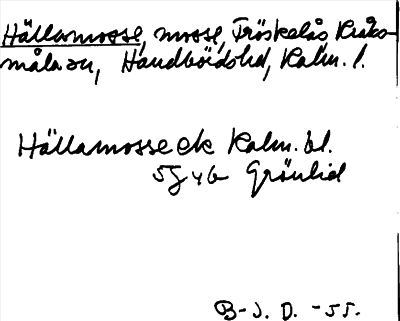 Hällamosse, mosse, Fröskelås Kråks-
måla sn, Handbörds hd, Kalm. l.
Hällamosse ek Kalm. bl.
5G 4b Grönlid
B-J. D. -55.